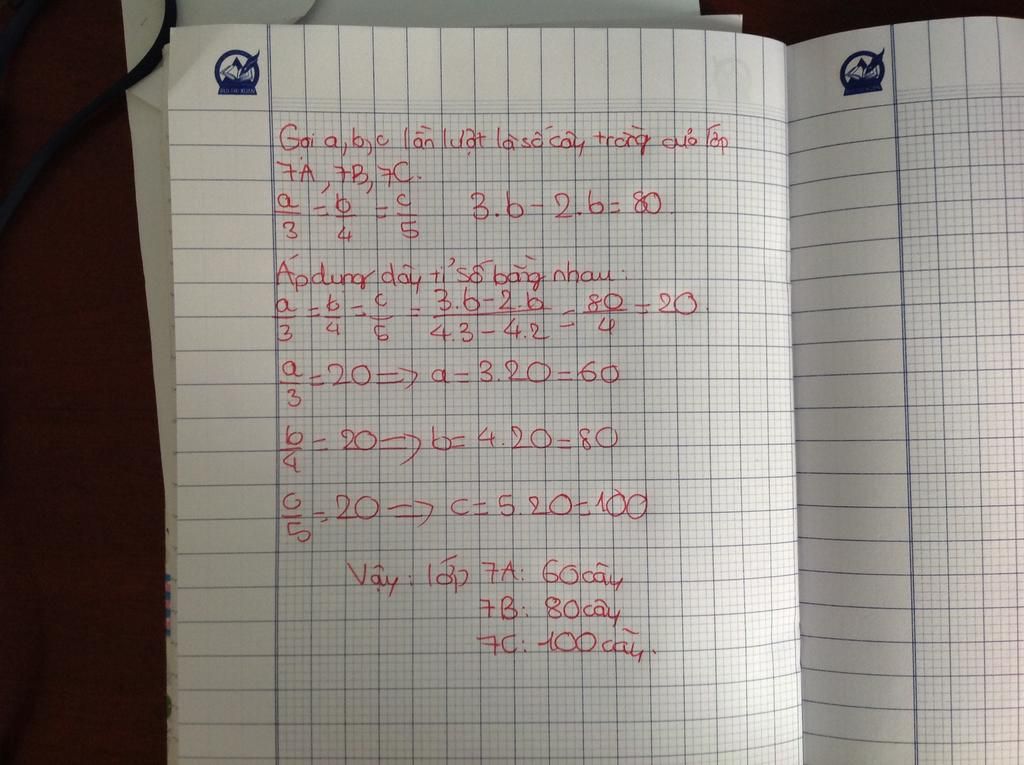 Gọi a, b, c lần lượt là số cây trồng của lớp
7A, 7B, 7C.
a/3 = b/4 = c/5 3.b - 2.b = 80.
Áp dụng dãy tỉ số bằng nhau:
a/3 = b/4 = c/5 = (3.b - 2.b)/(4.3 - 4.2) = 80/4 = 20.
a/3 = 20 => a = 3.20 = 60
b/4 = 20 => b = 4.20 = 80
c/5 = 20 => c = 5.20 = 100
Vậy: lớp 7A: 60 cây
7B: 80 cây
7C: 100 cây.